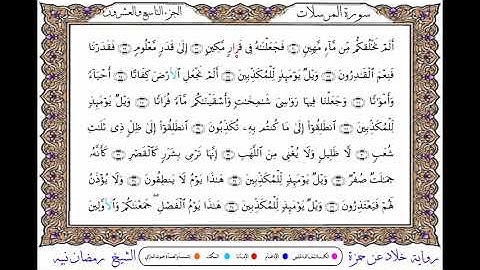 سورة المرسلات الجزء التاسع والعشرون
أَلَمْ نَخْلُقكُّم مِّن مَّآءٍ مَّهِينٍ فَجَعَلْنَٰهُ فِى قَرَارٍ مَّكِينٍ إِلَىٰ قَدَرٍ مَّعْلُومٍ فَقَدَرْنَا
فَنِعْمَ ٱلْقَٰدِرُونَ وَيْلٌ يَوْمَئِذٍ لِّلْمُكَذِّبِينَ أَلَمْ نَجْعَلِ ٱلْأَرْضَ كِفَاتًا أَحْيَآءً
وَأَمْوَٰتًا وَجَعَلْنَا فِيهَا رَوَٰسِىَ شَٰمِخَٰتٍ وَأَسْقَيْنَٰكُم مَّآءً فُرَاتًا وَيْلٌ يَوْمَئِذٍ
لِّلْمُكَذِّبِينَ ٱنطَلِقُوٓا۟ إِلَىٰ مَا كُنتُم بِهِۦ تُكَذِّبُونَ ٱنطَلِقُوٓا۟ إِلَىٰ ظِلٍّ ذِى ثَلَٰثِ
شُعَبٍ لَّا ظَلِيلٍ وَلَا يُغْنِى مِنَ ٱللَّهَبِ إِنَّهَا تَرْمِى بِشَرَرٍ كَٱلْقَصْرِ كَأَنَّهُۥ
جِمَٰلَتٌ صُفْرٌ وَيْلٌ يَوْمَئِذٍ لِّلْمُكَذِّبِينَ هَٰذَا يَوْمُ لَا يَنطِقُونَ وَلَا يُؤْذَنُ
لَهُمْ فَيَعْتَذِرُونَ وَيْلٌ يَوْمَئِذٍ لِّلْمُكَذِّبِينَ هَٰذَا يَوْمُ ٱلْفَصْلِ جَمَعْنَٰكُمْ وَٱلْأَوَّلِينَ
رواية خلاد عن حمزة الشيخ رمضان نبيه